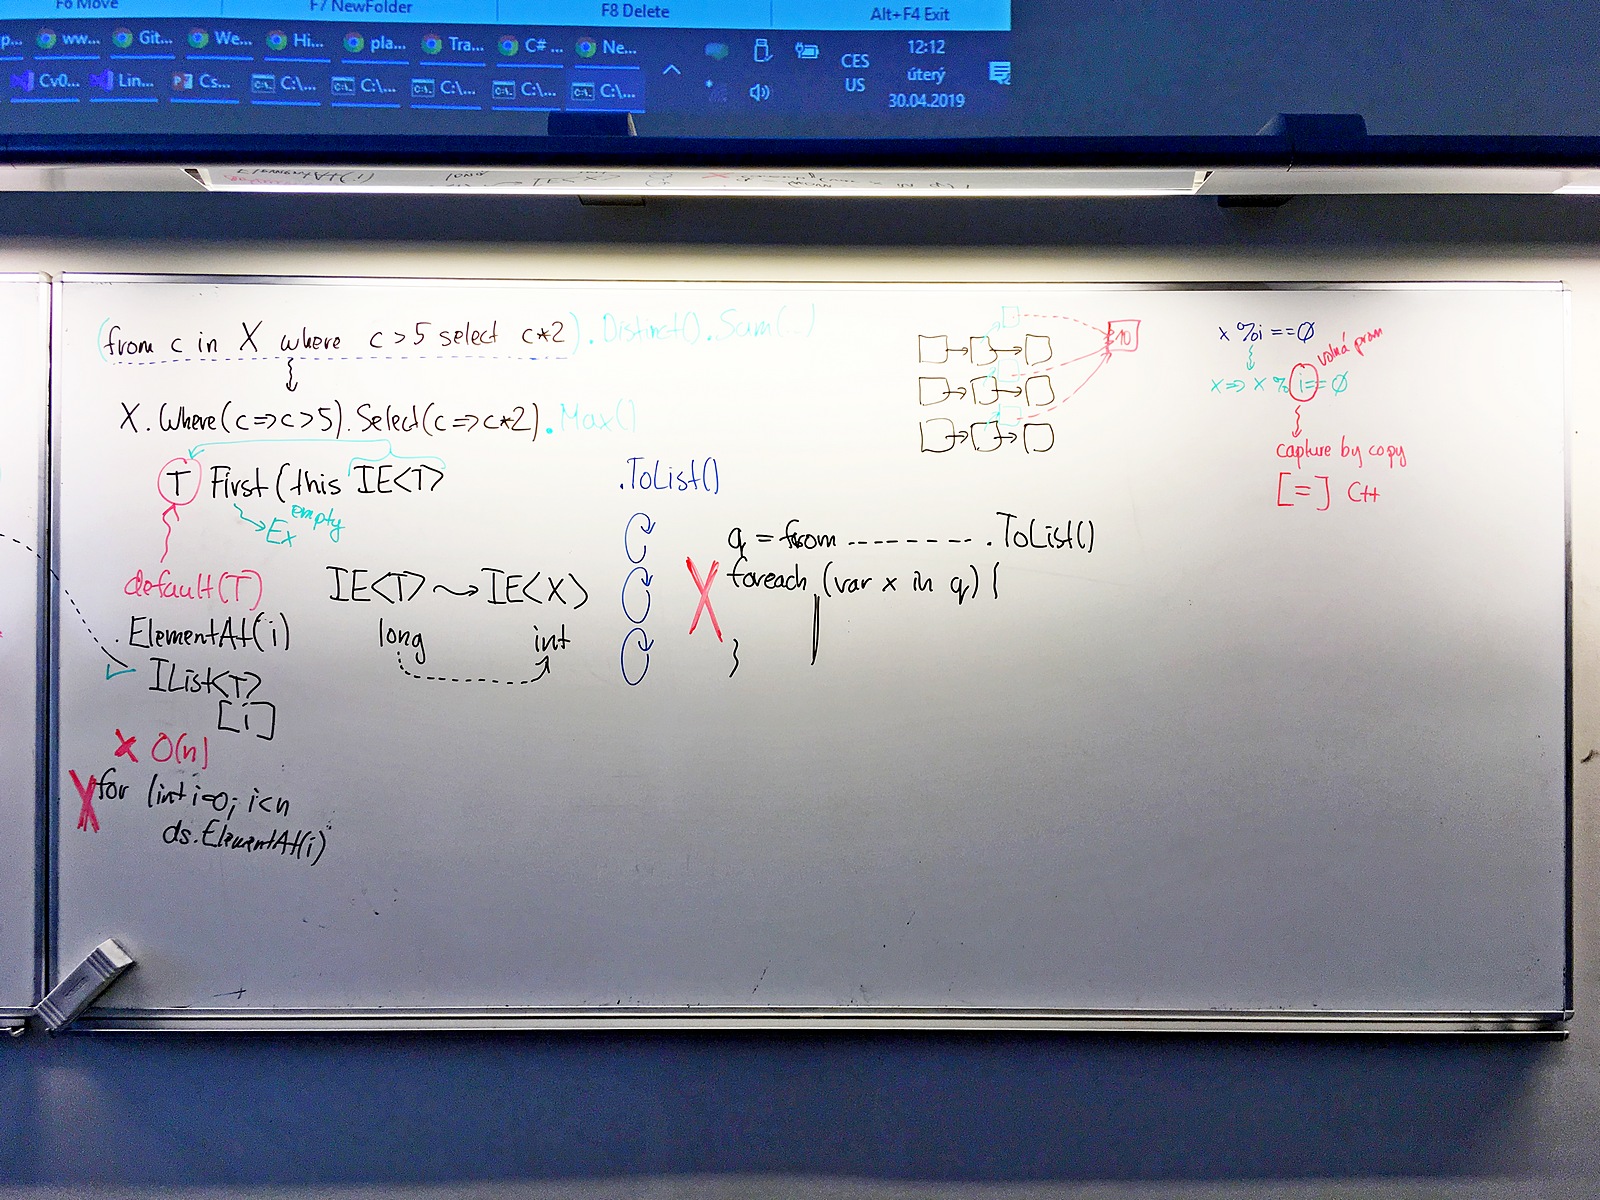 F6 Move F7 NewFolder F8 Delete Alt+F4 Exit
p... ww... Git... We... Hi... pla... Tra... C# ... Ne...
Cv0... Lin... Cs... C:\... C:\... C:\... C:\... C:\...
CES
US
12:12
úterý
30.04.2019
ElementAt(i)
(from c in X where c > 5 select c*2).Distinct().Sum(...)
X.Where(c=>c>5).Select(c=>c*2).Max()
T First(this IE<T>
empty
Ex
default(T)
.ElementAt(i)
IList<T>
[i]
x O(n)
for (int i=0; i<n
ds.ElementAt(i)
IE<T> IE<X>
long int
.ToList()
q = from --------- .ToList()
foreach (var x in q) {
}
10
x %i ==0
x => x % i == 0
volná prom
capture by copy
[=] C++